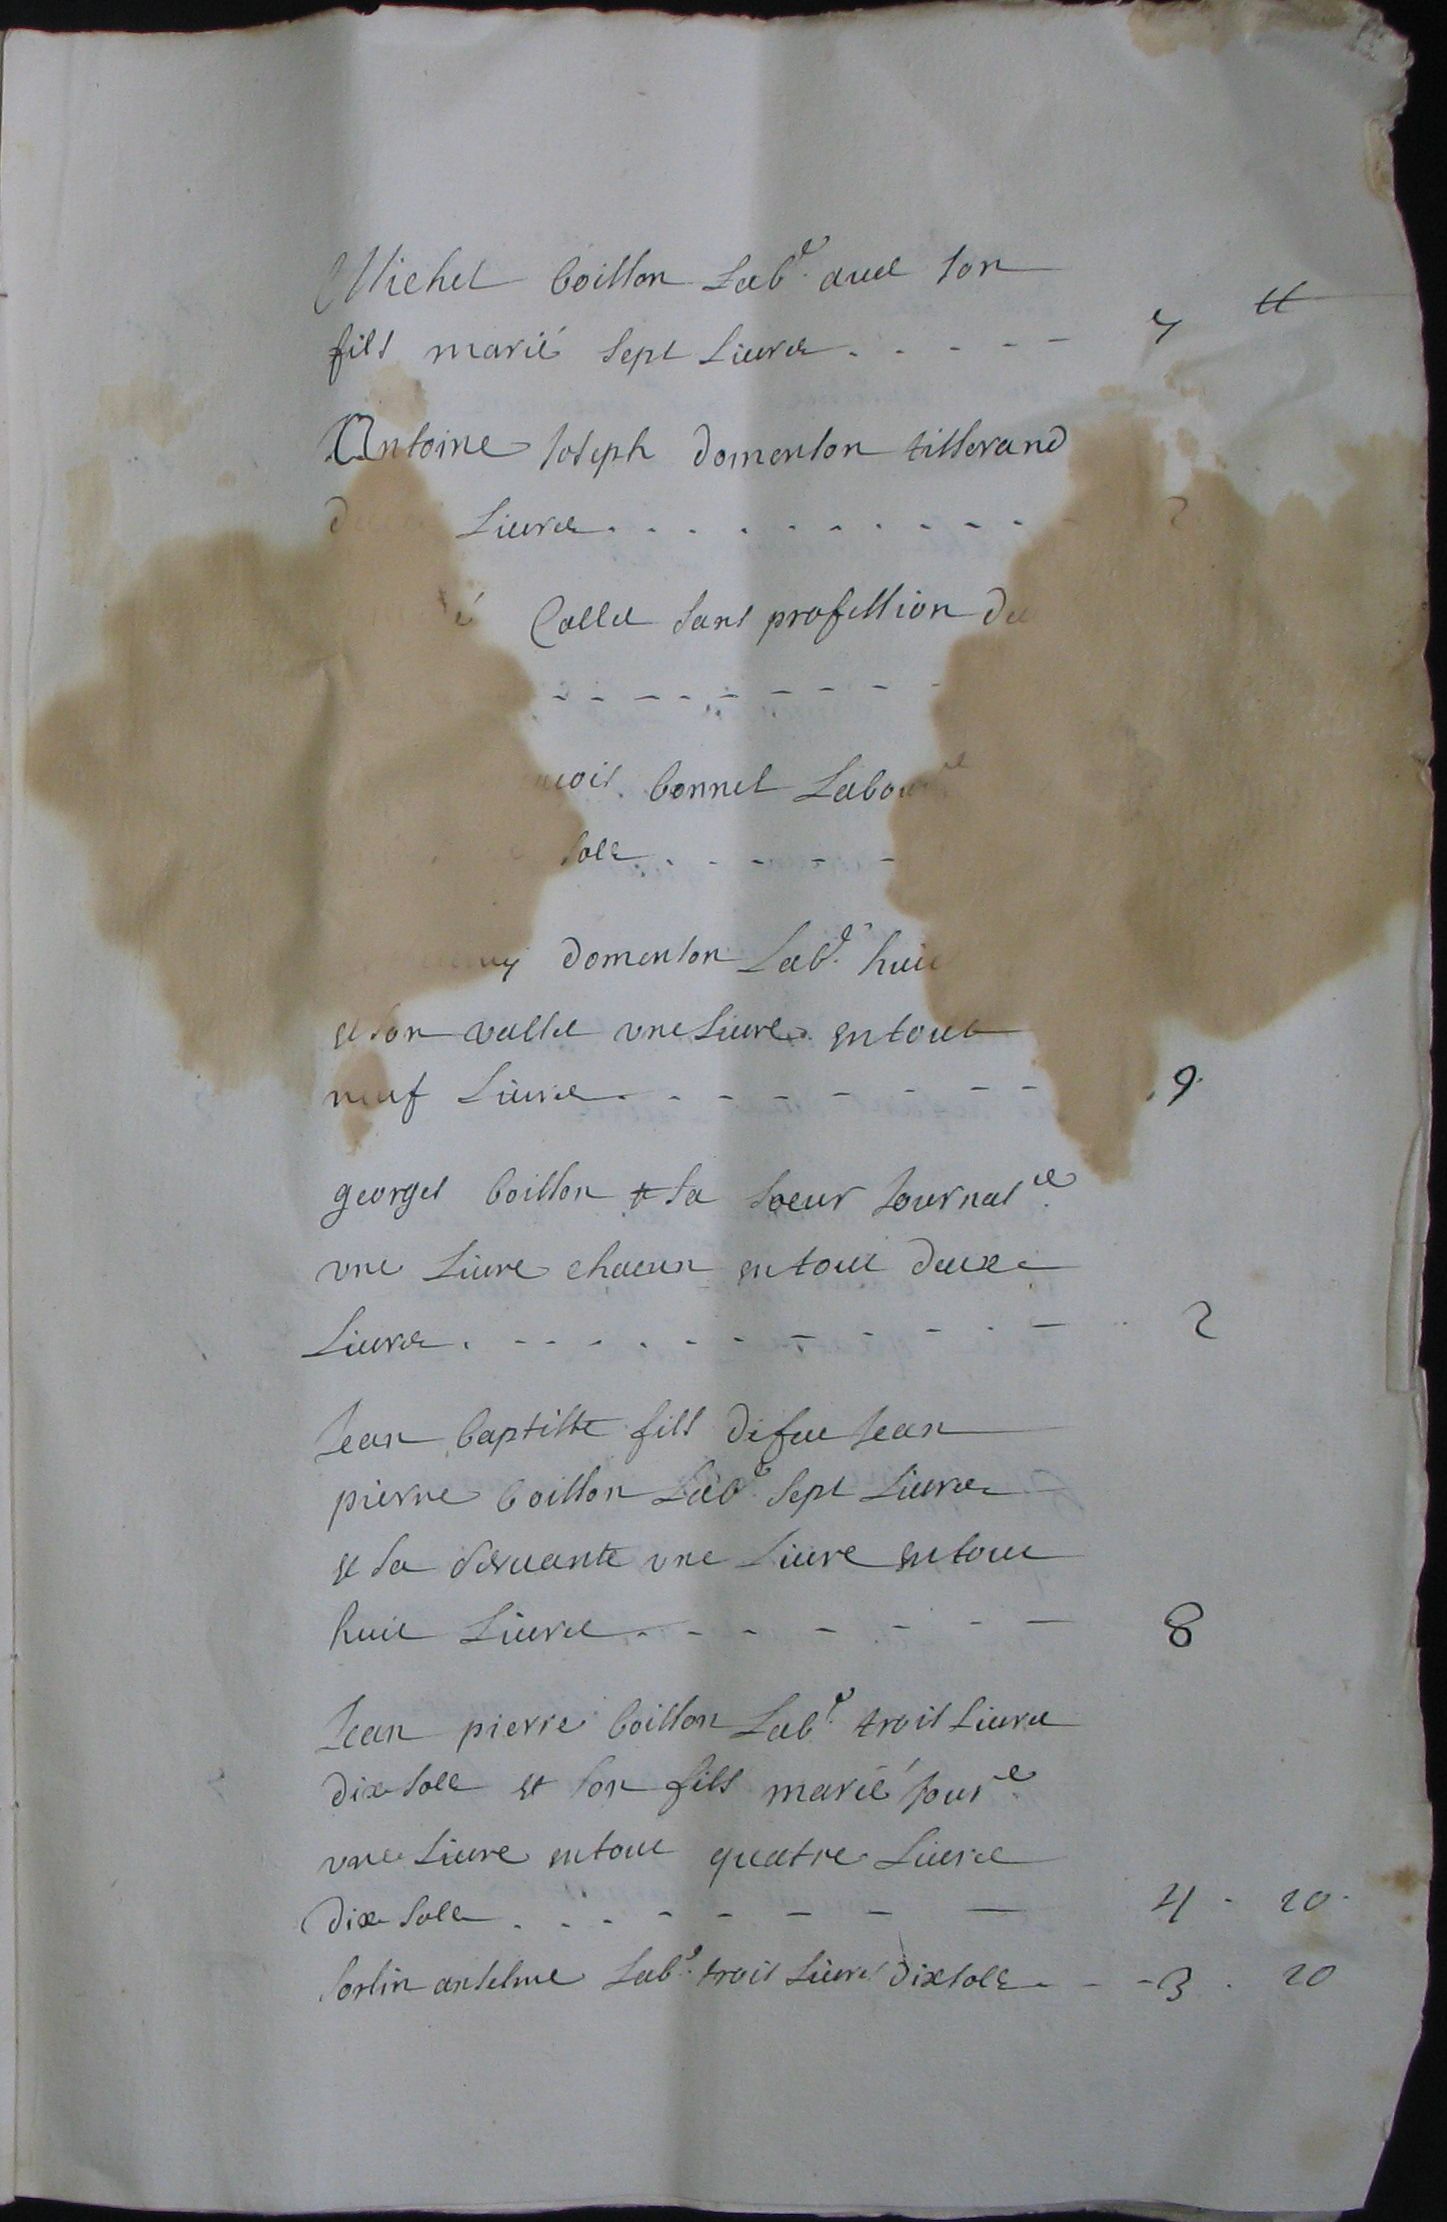 Michel boillon Lab.r avec son
fils marié sept Livres - - - - - 7 ₶
Antoine Joseph domenson tisserand
deux Livres - - - - - - - - - 2
é Collet sans profession de
- - - - - - - -
ncois bonnet Labour
sols - - - - -
domenson Lab.r huit
et son vallet une Livre en tout
neuf Livres - - - - - - - 9
georges boillon et sa soeur Journal.re
une Livre chacun en tout deux
Livres - - - - - - - - - 2
Jean baptiste fils de feu Jean
pierre boillon Lab.r sept Livres
et sa servante une Livre en tout
huit Livres - - - - - - - 8
Jean pierre boillon Lab.r trois Livres
dix sols et son fils marié Jour.r
une Livre en tout quatre Livres
dix sols - - - - - - - 4 - 10
anselme Lab.r trois Livres dix sols - - - 3 - 10